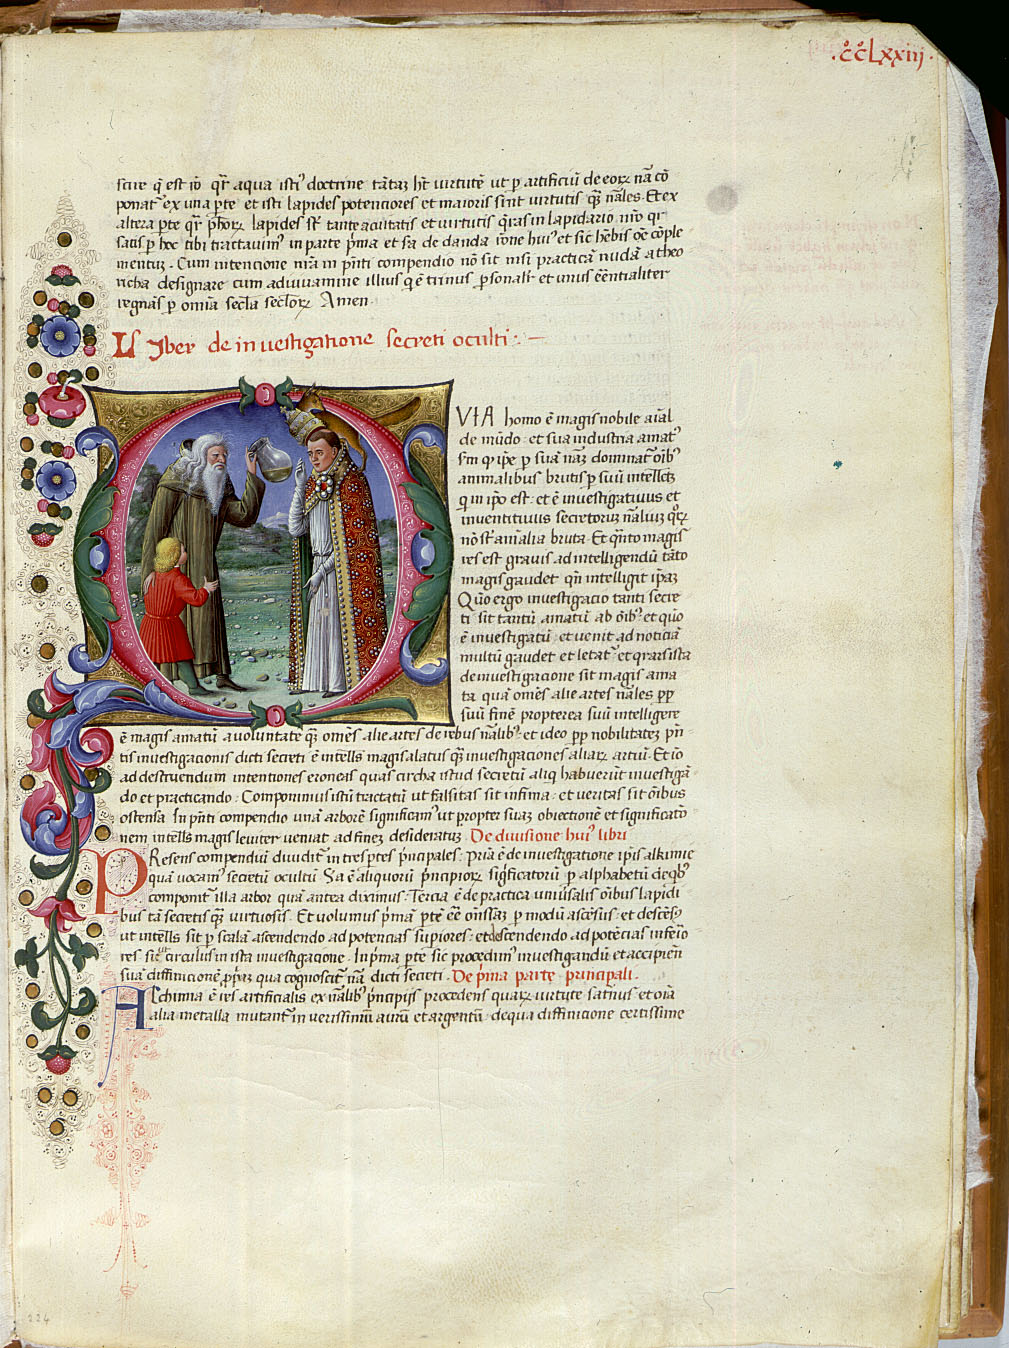 .CCLxxiij.
scire q̄ est iō qr̄ aqua isti⁹ doctrine tātaȝ hr̄ virtutē ut p artificiū de eorꝝ nā cō
ponat᷑ ex una pte et isti lapides potenciores et maioris sint virtutis q̄ȝ nāles. Et ex
altera pte qr̄ phorꝝ lapides sr̄ tante acuitatis et virtutis q̄ras in lapidario nrō qr̄
satis p hoc tibi tractavim⁹ in parte prima et sa de danda rōne hui⁹ et sic hēbis oē cōple
mentuȝ. Cum intencione nrā in pn̄ti compendio nō sit nisi practicā nudā a theo
richa designare cum adiuvamine illius qi ē trinus psonalr̄ et unus eēntialiter
regnās p omnia secla seclorꝝ Amen.
Liber de investigatione secreti oculti. —
QVIA homo ē magis nobile aīal
de mūdo et sua industria amat᷑
sm qr ipē p suā nāȝ dominat᷑ oib⁹
animalibus brutis p suū intellectȝ
q in ipō est et ē investigativus et
inventitivus secretoruȝ nāliuȝ qorꝝ
nō sr̄ aīalia bruta. Et quto magis
res est gravis ad intelligendū tāto
magis gaudet qn̄ intelligit ipaȝ
Quō ergo investigacio tanti secre
ti sit tantū amatū ab oib⁹ et quō
ē investigatū et venit ad noticiā
multū gaudet et letat᷑ et q̄ras ista
de investigacione sit magis ama
ta quā omēs alie artes nāles pp
suū finē propterea suū intelligere
ē magis amatū a voluntate q̄ȝ omēs alie artes de rebus nālib⁹ et ideo pp nobilitateȝ pn̄
tis investigacionis dicti secreti ē intells magis alatus q̄ȝ investigaciones aliarꝝ artiū. Et iō
ad destruendum intentiones eroneas quas circha istud secretū aliq habuerūt investigā
do et practicando. Componimus istū tractatū ut falsitas sit infima et veritas sit oibus
ostensa In pn̄ti compendio unā arborē significam⁹ ut propter suaȝ obiectionē et significatō
nem intells magis leviter veniat ad fineȝ desideratuȝ. De divisione hui⁹ libri
PResens compendiū dividit᷑ in tres ptes pncipales. Pria ē de investigatione ipis alkimie
quā vocam⁹ secretū ocultū Sa ē aliquorū pncipiorꝝ significatorū p alphabetū de qb⁹
componit᷑ illa arbor quā antea diximus. Tercia ē de practica univsalis oibus lapidi
bus tā secretis q̄ȝ virtuosis. Et volumus pmā ptē eē onsaȝ p modū ascēsus et descēs⁹
ut intells sit p scalā ascendendo ad potencias supiores et descendendo ad potēcias inferio
res sic circulus in ista investigacione. In pma pte sic procedim⁹ investigandū et accipien
suā diffinicionē ppaȝ qua cognoscit᷑ nā dicti secreti. De pma parte principali.
ALchimia ē res artificialis ex nālib⁹ pncipijs procedens quarꝝ virtute saturnus et oīa
alia metalla mutant᷑ in verissimū aurū et argentū de qua diffinicione certissime
224